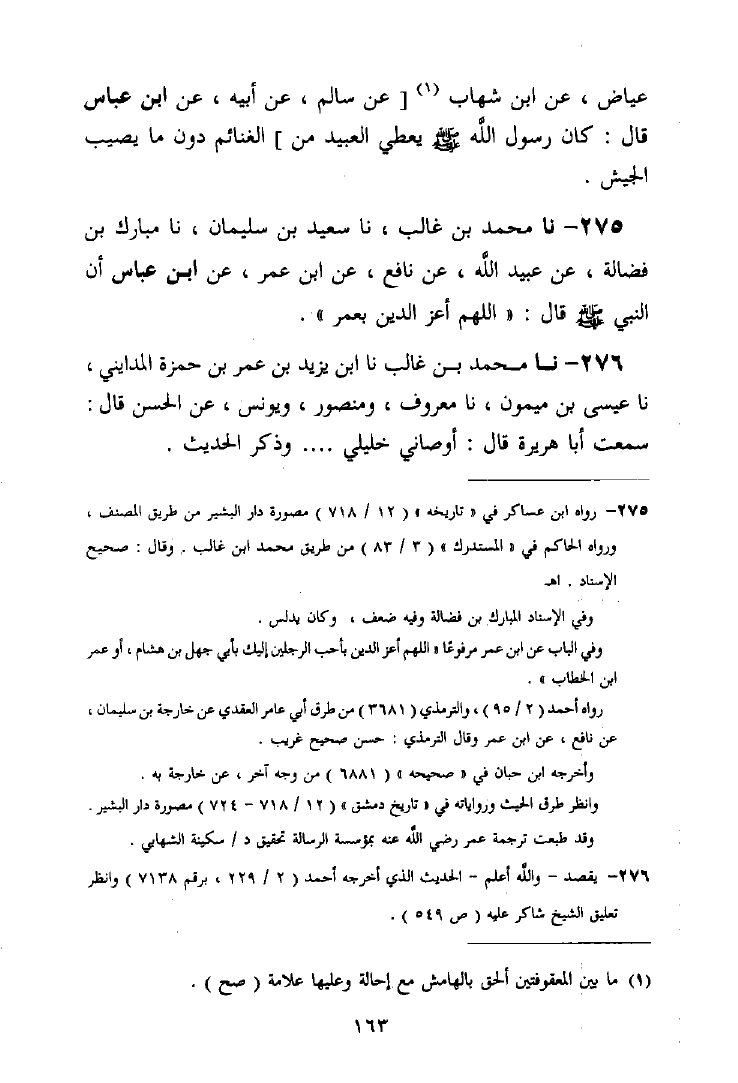 عياض ، عن ابن شهاب (١) [ عن سالم ، عن أبيه ، عن ابن عباس
قال : كان رسول الله ﷺ يعطي العبيد من ] الغنائم دون ما يصيب
الجيش .
٢٧٥- نا محمد بن غالب ، نا سعيد بن سليمان ، نا مبارك بن
فضالة ، عن عبيد الله ، عن نافع ، عن ابن عمر ، عن ابن عباس أن
النبي ﷺ قال : « اللهم أعز الدين بعمر » .
٢٧٦- نا محمد بن غالب نا ابن يزيد بن عمر بن حمزة المدايني ،
نا عيسى بن ميمون ، نا معروف ، ومنصور ، ويونس ، عن الحسن قال :
سمعت أبا هريرة قال : أوصاني خليلي .... وذكر الحديث .
٢٧٥- رواه ابن عساكر في « تاريخه » ( ١٢ / ٧١٨ ) مصورة دار البشير من طريق المصنف ،
ورواه الحاكم في « المستدرك » ( ٣ / ٨٣ ) من طريق محمد ابن غالب . وقال : صحيح
الإسناد . اهـ
وفي الإسناد المبارك بن فضالة وفيه ضعف ، وكان يدلس .
وفي الباب عن ابن عمر مرفوعًا « اللهم أعز الدين بأحب الرجلين إليك بأبي جهل بن هشام ، أو عمر
ابن الخطاب » .
رواه أحمد ( ٢ / ٩٥ ) ، والترمذي ( ٣٦٨١ ) من طرق أبي عامر العقدي عن خارجة بن سليمان ،
عن نافع ، عن ابن عمر وقال الترمذي : حسن صحيح غريب .
وأخرجه ابن حبان في « صحيحه » ( ٦٨٨١ ) من وجه آخر ، عن خارجة به .
وانظر طرق الحيث ورواياته في « تاريخ دمشق » ( ١٢ / ٧١٨ - ٧٢٤ ) مصورة دار البشير .
وقد طبعت ترجمة عمر رضي الله عنه بمؤسسة الرسالة تحقيق د / سكينة الشهابي .
٢٧٦- يقصد - والله أعلم - الحديث الذي أخرجه أحمد ( ٢ / ٢٢٩ ، برقم ٧١٣٨ ) وانظر
تعليق الشيخ شاكر عليه ( ص ٥٤٩ ) .
(١) ما بين المعقوفتين ألحق بالهامش مع إحالة وعليها علامة ( صح ) .
١٦٣